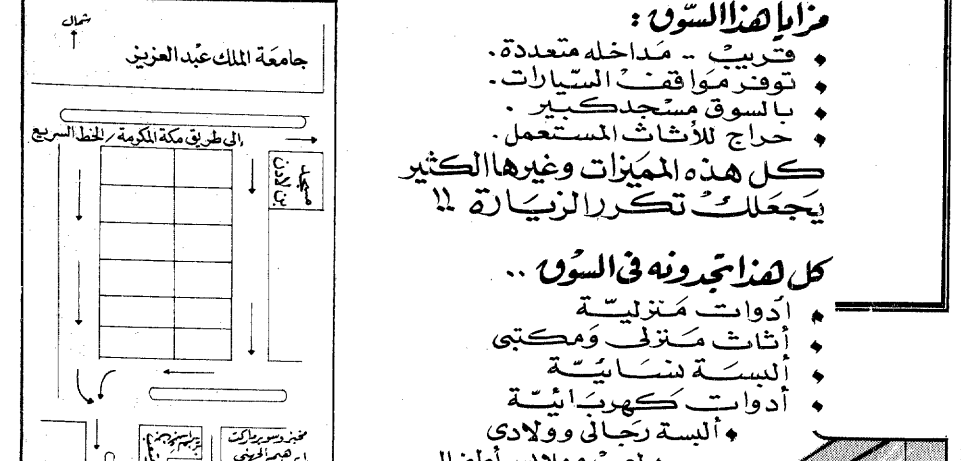 مزايا هذا السوق :
قريب .. مداخله متعددة .
توفر مواقف السيارات .
بالسوق مسجد كبير .
حراج للأثاث المستعمل .
كل هذه المميزات وغيرها الكثير
يجعلك تكرر الزيارة !!
كل هذا تجدونه في السوق ..
أدوات منزلية
أثاث منزلى ومكتبى
ألبسة نسائية
أدوات كهربائية
ألبسة رجالى وولادى
شمال
جامعة الملك عبد العزيز
إلى طريق مكة المكرمة / الخط السريع
مسجد
بن لادن
مخبز وسوبر ماركت